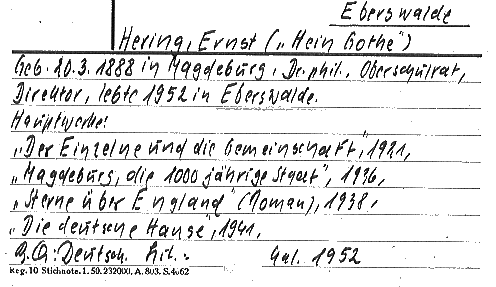 Eberswalde
Hering, Ernst („Hein Gothe")
Geb. 20.3.1888 in Magdeburg, Dr. phil., Oberschulrat,
Direktor, lebte 1952 in Eberswalde.
Hauptwerke:
„Der Einzelne und die Gemeinschaft", 1921,
„Magdeburg, die 1000 jährige Stadt", 1936,
„Sterne über England" (Roman), 1938,
„Die deutsche Hanse", 1941,
Deutsch. Lit.- Kal. 1952
Reg. 10 Stichnote. 1. 50. 232000. A. 803. S. 4062